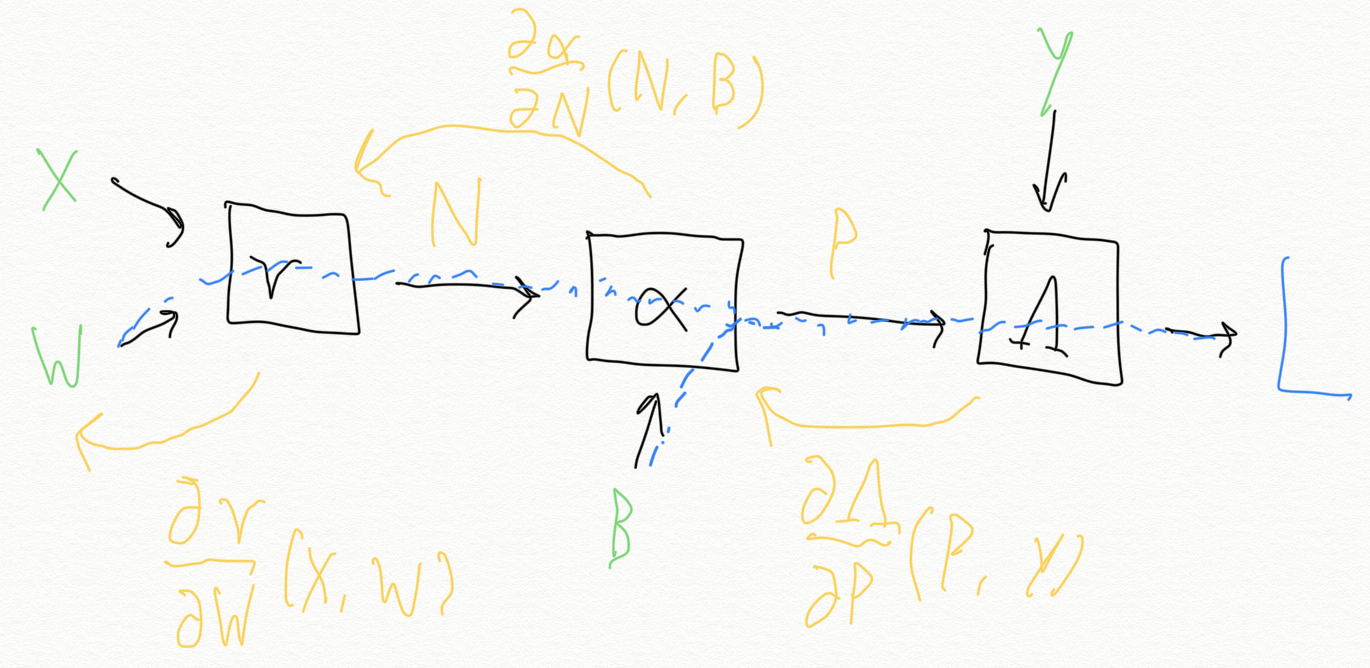 ∂α/∂N (N, B)
Y
X
N
P
ν
α
Λ
L
W
B
∂ν/∂W (X, W)
∂Λ/∂P (P, Y)